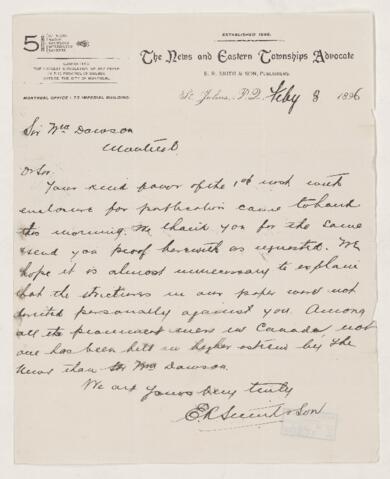 ESTABLISHED 1846.
The News and Eastern Townships Advocate
E. R. SMITH & SON, PUBLISHERS.
GUARANTEED
THE LARGEST CIRCULATION OF ANY PAPER
IN THE PROVINCE OF QUEBEC
OUTSIDE THE CITY OF MONTREAL.
MONTREAL OFFICE: 73 IMPERIAL BUILDING.
St. Johns, P.Q. Feby 8 1896
Sir Wm Dawson
Montreal
Dr Sir
Your kind favor of the 1st inst with
enclosure for publication came to hand
this morning. We thank you for the same
& send you proof herewith as requested. We
hope it is almost unnecessary to explain
that the strictures in our paper were not
directed personally against you. Among
all the prominent men in Canada, not
one has been held in higher esteem by the
News than Sir Wm Dawson.
We are
Yours very truly
E R Smith & Son